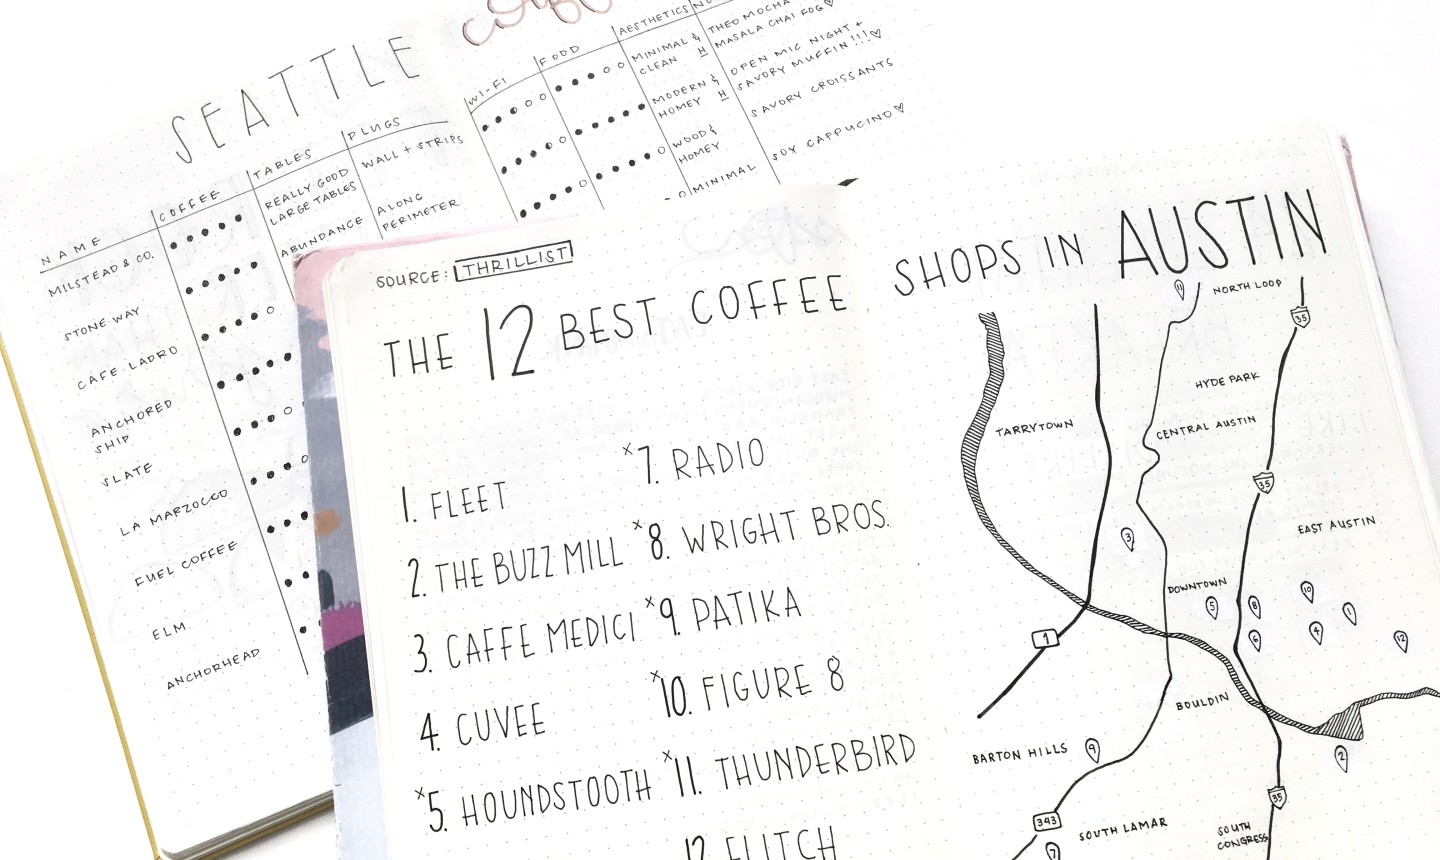 SEATTLE
NAME
COFFEE
TABLES
PLUGS
WI-FI
FOOD
AESTHETICS
MILSTEAD & CO.
REALLY GOOD
LARGE TABLES
WALL + STRIPS
MINIMAL &
CLEAN
THEO MOCHA
MASALA CHAI FOG♡
STONE WAY
ABUNDANCE
ALONG
PERIMETER
MODERN &
HOMEY
OPEN MIC NIGHT +
SAVORY MUFFIN!!!♡
CAFE LADRO
WOOD &
HOMEY
SAVORY CROISSANTS
ANCHORED
SHIP
MINIMAL
SOY CAPPUCINO♡
SLATE
LA MARZOCCO
FUEL COFFEE
ELM
ANCHORHEAD
SOURCE: THRILLIST
THE 12 BEST COFFEE SHOPS IN AUSTIN
1. FLEET
2. THE BUZZ MILL
3. CAFFE MEDICI
4. CUVEE
x5. HOUNDSTOOTH
x7. RADIO
x8. WRIGHT BROS.
x9. PATIKA
x10. FIGURE 8
x11. THUNDERBIRD
12. FLITCH
11
NORTH LOOP
35
HYDE PARK
TARRYTOWN
CENTRAL AUSTIN
35
EAST AUSTIN
3
DOWNTOWN
5
8
10
1
6
4
12
1
BOULDIN
BARTON HILLS
9
2
35
343
SOUTH LAMAR
7
SOUTH
CONGRESS